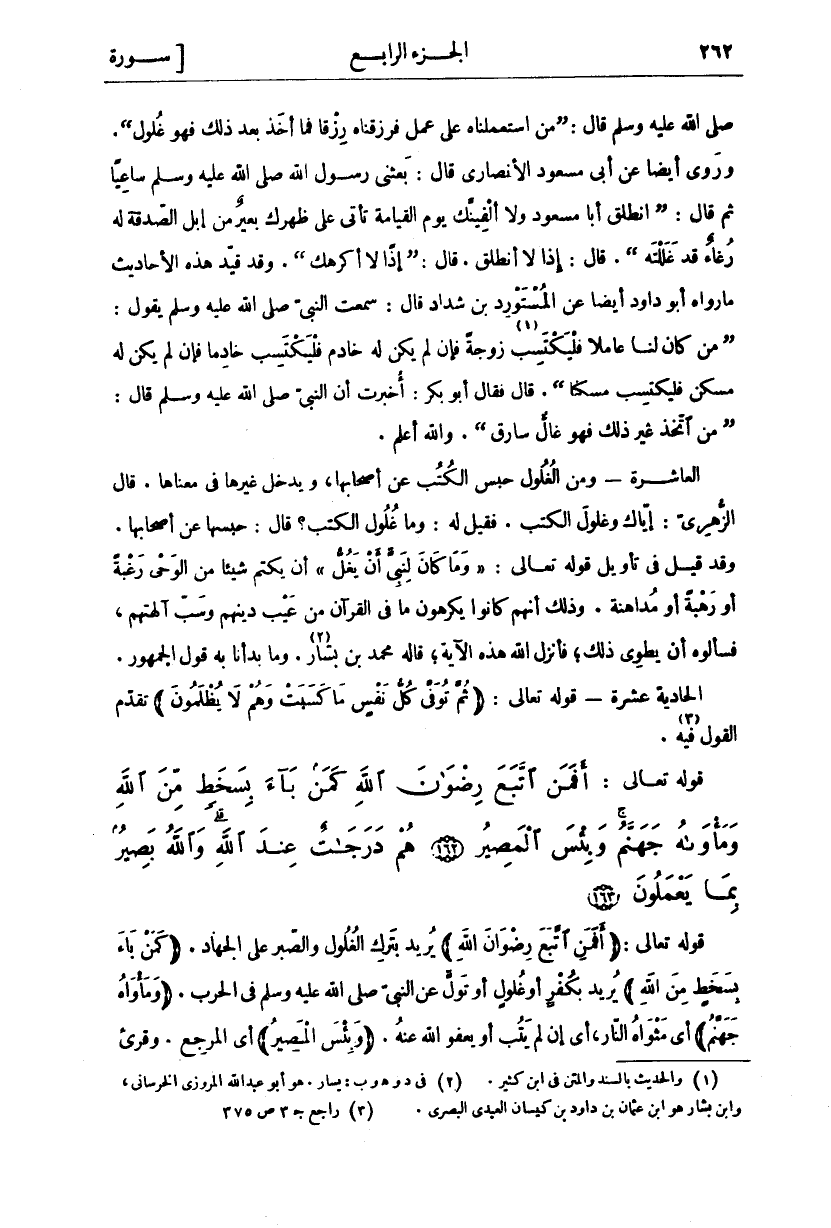 ٢٦٢ الجـــزء الرابـــع [ ســـورة
صلى الله عليه وسلم قال : ”من استعملناه على عمل فرزقناه رِزْقا فما أخَذ بعد ذلك فهو غُلول“.
ورَوى أيضا عن أبى مسعود الأنصارى قال : بَعثنى رســول الله صلى الله عليه وسـلم ساعِيًّا
ثم قال : ” انطلق أبا مسعود ولا ألْفِينَّك يوم القيامة تأتى على ظهرك بعيرٌ من إبل الصّدقة له
رُغاءٌ قد غَلَلْته “ . قال : إذا لا أنطلق . قال : ” إذًا لا أكرهك “ . وقد قيّد هذه الأحاديث
مارواه أبو داود أيضا عن المُسْتَوْرِد بن شداد قال : سمعت النبىّ صلى الله عليه وسلم يقول :
” من كان لنــا عاملا فلْيَكْتَسِب (١) زوجةً فإن لم يكن له خادم فلْيَكْتَسِب خادِما فإن لم يكن له
مسكن فليكتسِب مسكنا “ . قال فقال أبو بكر : أُخبرت أن النبىّ صلى الله عليه وســلم قال :
” من ٱتّخذ غير ذلك فهو غالٌّ سارق “ . والله أعلم .
العاشـــرة — ومن الغُلول حبس الكُتُب عن أصحابها، ويدخل غيرها فى معناها . قال
الزُّهْرِىّ : إيّاك وغلولَ الكتب . فقيل له : وما غُلُول الكتب؟ قال : حبسها عن أصحابها .
وقد قيــل فى تأويل قوله تعــالى : « وَمَا كَانَ لِنَبِىٍّ أَنْ يَغُلَّ » أن يكتم شيئا من الوَحْى رَغْبةً
أو رَهْبةً أو مُداهنة . وذلك أنهم كانوا يكرهون ما فى القرآن من عَيْب دينهم وسَبّ آلهتهم ،
فسألوه أن يطوِى ذلك؛ فأنزل الله هذه الآية؛ قاله محمد بن بشّار (٢) . وما بدأنا به قول الجمهور .
الحادية عشرة — قوله تعالى : ﴿ ثُمَّ تُوَفَّى كُلُّ نَفْسٍ مَا كَسَبَتْ وَهُمْ لَا يُظْلَمُونَ ﴾ تقدّم
القول فيه (٣) .
قوله تعــالى : أَفَمَنِ ٱتَّبَعَ رِضْوَٰنَ ٱللَّهِ كَمَنۢ بَآءَ بِسَخَطٍ مِّنَ ٱللَّهِ
وَمَأْوَىٰهُ جَهَنَّمُ ۚ وَبِئْسَ ٱلْمَصِيرُ ١٦٢ هُمْ دَرَجَـٰتٌ عِندَ ٱللَّهِ ۗ وَٱللَّهُ بَصِيرُۢ
بِمَـا يَعْمَلُونَ ١٦٣
قوله تعالى : ﴿ أَفَمَنِ ٱتَّبَعَ رِضْوَانَ اللهِ ﴾ يُريد بترك الغُلول والصّبر على الجهاد . ﴿ كَمَنْ بَاءَ
بِسَخَطٍ مِنَ اللهِ ﴾ يُريد بكُفْرٍ أو غُلولٍ أو تَولٍّ عن النبىّ صلى الله عليه وسلم فى الحرب . ﴿ وَمَأْوَاهُ
جَهَنَّمُ ﴾ أى مَثْواه النّار، أى إن لم يَتُب أو يعفو الله عنهُ . ﴿ وَبِئْسَ الْمَصِيرُ ﴾ أى المرجع . وقرئ
(١) والحديث بالسند والمتن فى ابن كثير . (٢) فى د وهـ وب : يسار . هو أبو عبدالله المروزى الخرسانى ،
وابن بشار هو ابن عثمان بن داود بن كيسان العبدى البصرى . (٣) راجع جـ ٣ ص ٣٧٥